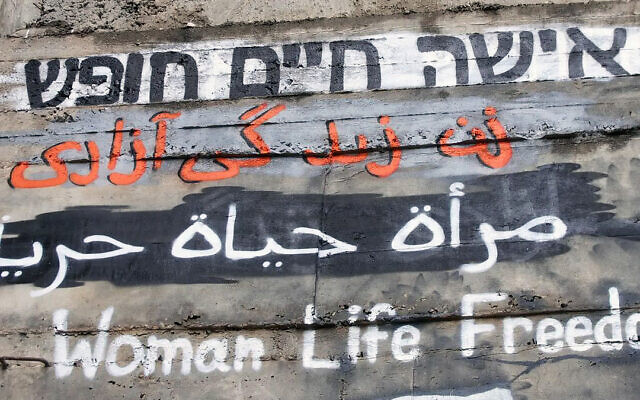 אישה חיים חופש
زن زندگی آزادی
مرأة حياة حري
Woman Life Freedo